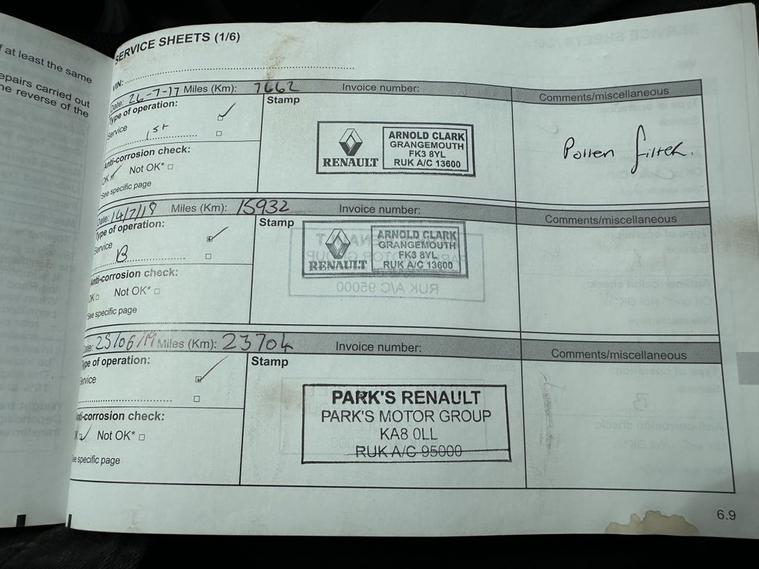 f at least the same
epairs carried out
he reverse of the
SERVICE SHEETS (1/6)
VIN:
Date: 26-7-17 Miles (Km): 7662 Invoice number: Comments/miscellaneous
Type of operation: Stamp
Service
1st
Anti-corrosion check:
OK Not OK*
*See specific page
RENAULT
ARNOLD CLARK
GRANGEMOUTH
FK3 8YL
RUK A/C 13600
Pollen filter.
Date: 14/7/18 Miles (Km): 15932 Invoice number: Comments/miscellaneous
Type of operation: Stamp
Service
B
Anti-corrosion check:
OK Not OK*
*See specific page
RENAULT
ARNOLD CLARK
GRANGEMOUTH
FK3 8YL
RUK A/C 13600
Date: 25/06/19 Miles (Km): 23704 Invoice number: Comments/miscellaneous
Type of operation: Stamp
Service
Anti-corrosion check:
OK Not OK*
*See specific page
PARK'S RENAULT
PARK'S MOTOR GROUP
KA8 0LL
RUK A/C 95000
6.9